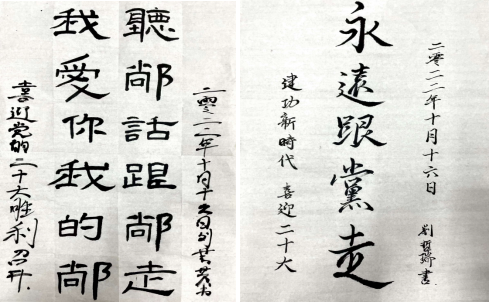 二零二二年十月十六日刘
聽䣊話跟䣊走
我愛你我的䣊
喜迎党的二十大胜利召开
二零二二年十月十六日
劉 書
永遠跟黨走
建功新時代 喜迎二十大